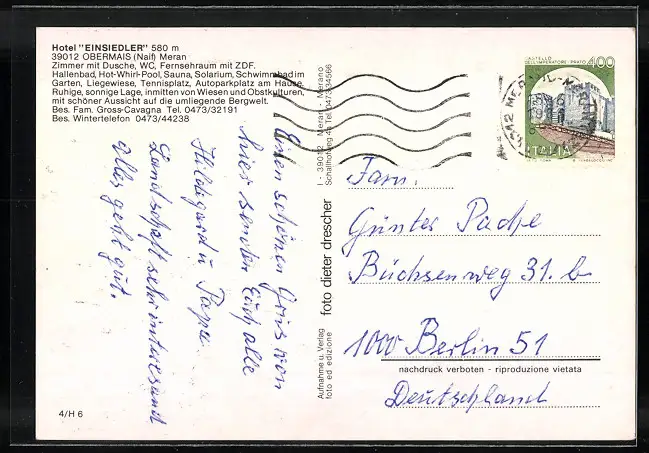 Hotel "EINSIEDLER" 580 m
39012 OBERMAIS (Naif) Meran
Zimmer mit Dusche, WC, Fernsehraum mit ZDF.
Hallenbad, Hot-Whirl-Pool, Sauna, Solarium, Schwimmbad im
Garten, Liegewiese, Tennisplatz, Autoparkplatz am Hause,
Ruhige, sonnige Lage, inmitten von Wiesen und Obstkulturen,
mit schöner Aussicht auf die umliegende Bergwelt.
Bes. Fam. Gross-Cavagna Tel. 0473/32191
Bes. Wintertelefon 0473/44238
Einen schönen Gruss von
hier senden Euch alle
Hildegard u Papa.
Landschaft sehr interessand
alles geht gut.
4/H 6
Aufnahme u. Verlag
foto ed edizione
foto dieter drescher
I - 39012 Meran - Merano
Schallhofweg 4a Tel. 0473/34566
CASTELLO
DELL'IMPERATORE · PRATO
400
ITALIA
Fam.
Günter Pache
Büchsenweg 31. b
1000 Berlin 51
nachdruck verboten - riproduzione vietata
Deutschland